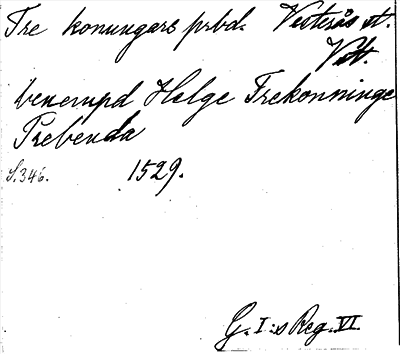 Tre konungars prbd. Vesterås st.
Vst.
benempd Helge Trekonninge
Prebenda
S. 346. 1529.
G. I:s Reg. VI.